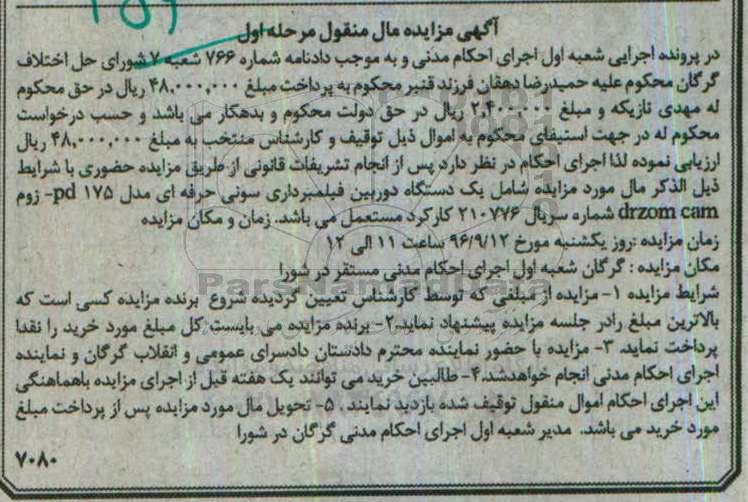 آگهی مزایده مال منقول مرحله اول
در پرونده اجرایی شعبه اول اجرای احکام مدنی و به موجب دادنامه شماره ۷۶۶ شعبه ۷ شورای حل اختلاف
گرگان محکوم علیه حمیدرضا دهقان فرزند قنبر محکوم به پرداخت مبلغ ۴۸,۰۰۰,۰۰۰ ریال در حق محکوم
له مهدی تازیکه و مبلغ ۲,۴۰۰,۰۰۰ ریال در حق دولت محکوم و بدهکار می باشد و حسب درخواست
محکوم له در جهت استیفای محکوم به اموال ذیل توقیف و کارشناس منتخب به مبلغ ۴۸,۰۰۰,۰۰۰ ریال
ارزیابی نموده لذا اجرای احکام در نظر دارد پس از انجام تشریفات قانونی از طریق مزایده حضوری با شرایط
ذیل الذکر مال مورد مزایده شامل یک دستگاه دوربین فیلمبرداری سونی حرفه ای مدل pd ۱۷۵- زوم
drzom cam شماره سریال ۲۱۰۷۷۶ کارکرد مستعمل می باشد. زمان و مکان مزایده
زمان مزایده :روز یکشنبه مورخ ۹۶/۹/۱۲ ساعت ۱۱ الی ۱۲
مکان مزایده : گرگان شعبه اول اجرای احکام مدنی مستقر در شورا
شرایط مزایده ۱- مزایده از مبلغی که توسط کارشناس تعیین گردیده شروع برنده مزایده کسی است که
بالاترین مبلغ رادر جلسه مزایده پیشنهاد نماید.۲- برنده مزایده می بایست کل مبلغ مورد خرید را نقدا
پرداخت نماید. ۳- مزایده با حضور نماینده محترم دادستان دادسرای عمومی و انقلاب گرگان و نماینده
اجرای احکام مدنی انجام خواهدشد.۴- طالبین خرید می توانند یک هفته قبل از اجرای مزایده باهماهنگی
این اجرای احکام اموال منقول توقیف شده بازدید نمایند . ۵- تحویل مال مورد مزایده پس از پرداخت مبلغ
مورد خرید می باشد. مدیر شعبه اول اجرای احکام مدنی گرگان در شورا
۷۰۸۰
ParsNamadData